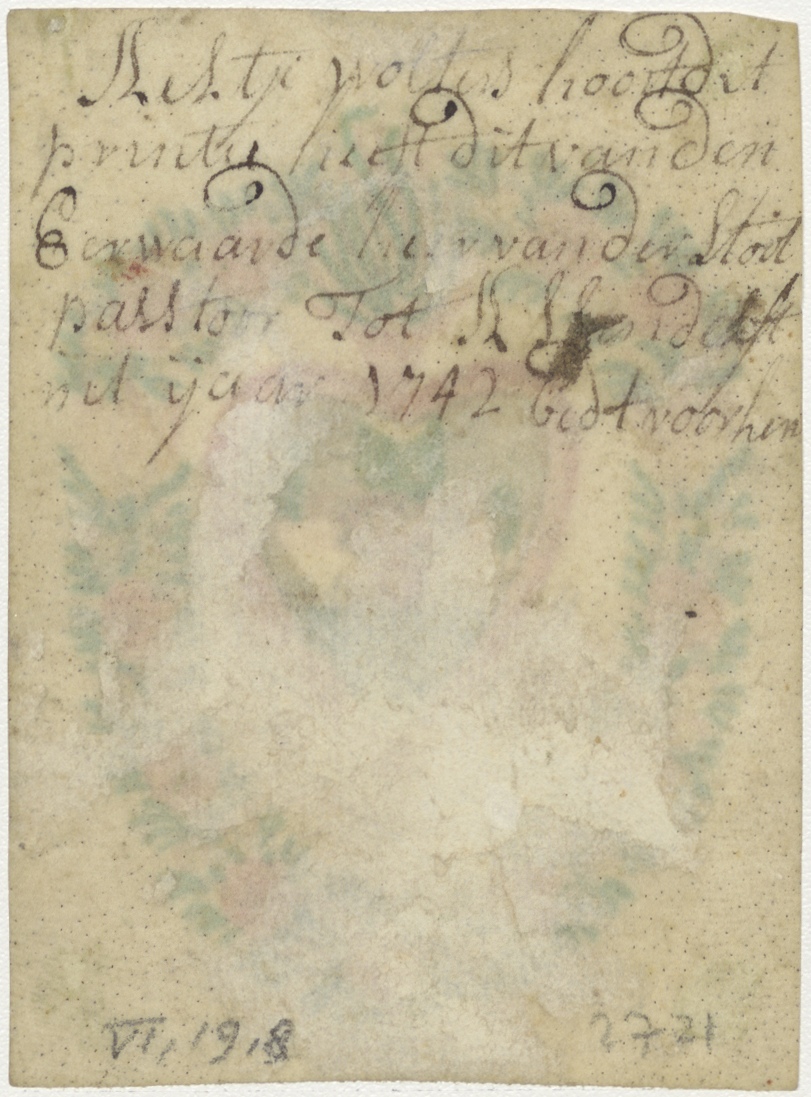 wolters hoordt dit
printie heeft dit van den
Eerwaarde heer van der Stoit
passtoor Tot
int ijaar 1742 bedt voor hen
VI, 19, 8
2721